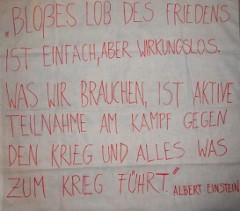 „BLOßES LOB DES FRIEDENS
IST EINFACH, ABER WIRKUNGSLOS.
WAS WIR BRAUCHEN, IST AKTIVE
TEILNAHME AM KAMPF GEGEN
DEN KRIEG UND ALLES WAS
ZUM KREG FÜHRT.“ ALBERT EINSTEIN